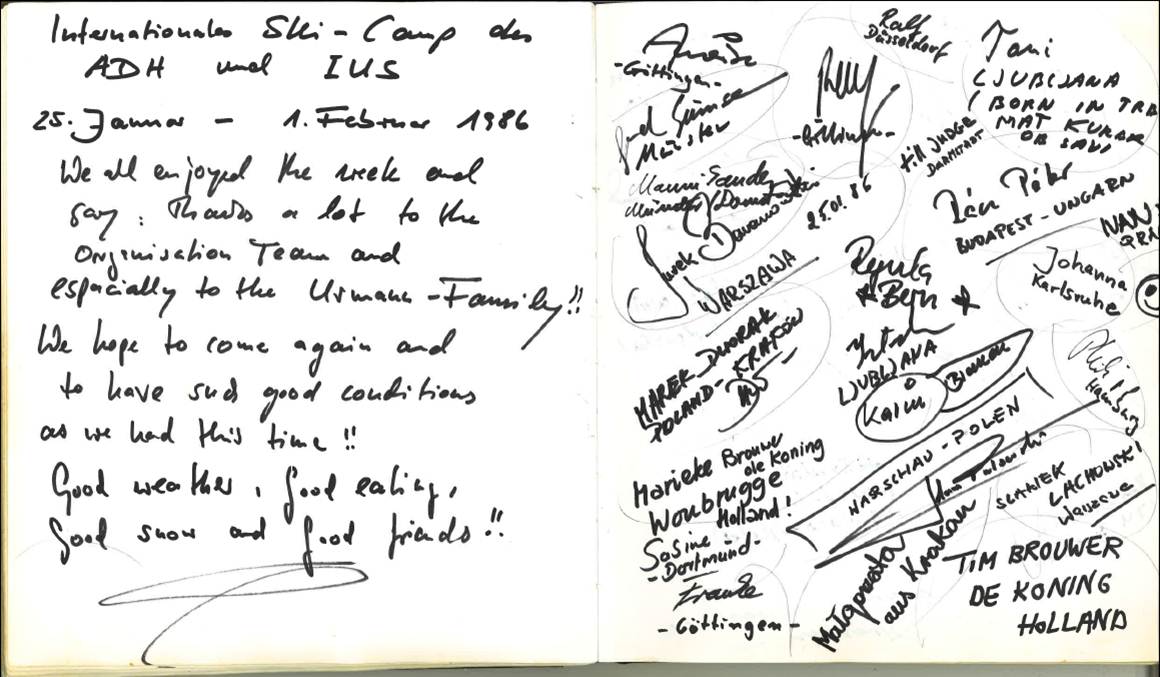 Internationales Ski-Camp des
ADH und IUS
25. Januar - 1. Februar 1986
We all enjoyed the week and
say: Thanks a lot to the
Organisation Team and
espacially to the Urmann-Family!!
We hope to come again and
to have such good conditions
as we had this time!!
Good weather, good eating,
Good snow and good friends!!
-Göttingen-
Münster
Ralf
Düsseldorf
-Göttingen-
till JUDGE
DARMSTADT
Tani
LJUBLJANA
(BORN IN TRB
MAT KURAR
OB SAVI
25.01.86
Jurek
WARSZAWA
Pén Péter
BUDAPEST-UNGARN
IVAN
PRA
Johanna
Karlsruhe
Regula
* Bern *
MAREK DWORAK
POLAND-KRAKÓW
LJUBLJANA
Karin
Hamburg
WARSCHAU-POLEN
Marieke Brouwer
de Koning
Woubrugge
Holland!
Sabine
-Dortmund-
Frauke
-Göttingen-
Małgorzata
aus Krakau
LACHOWSKI
TIM BROUWER
DE KONING
HOLLAND